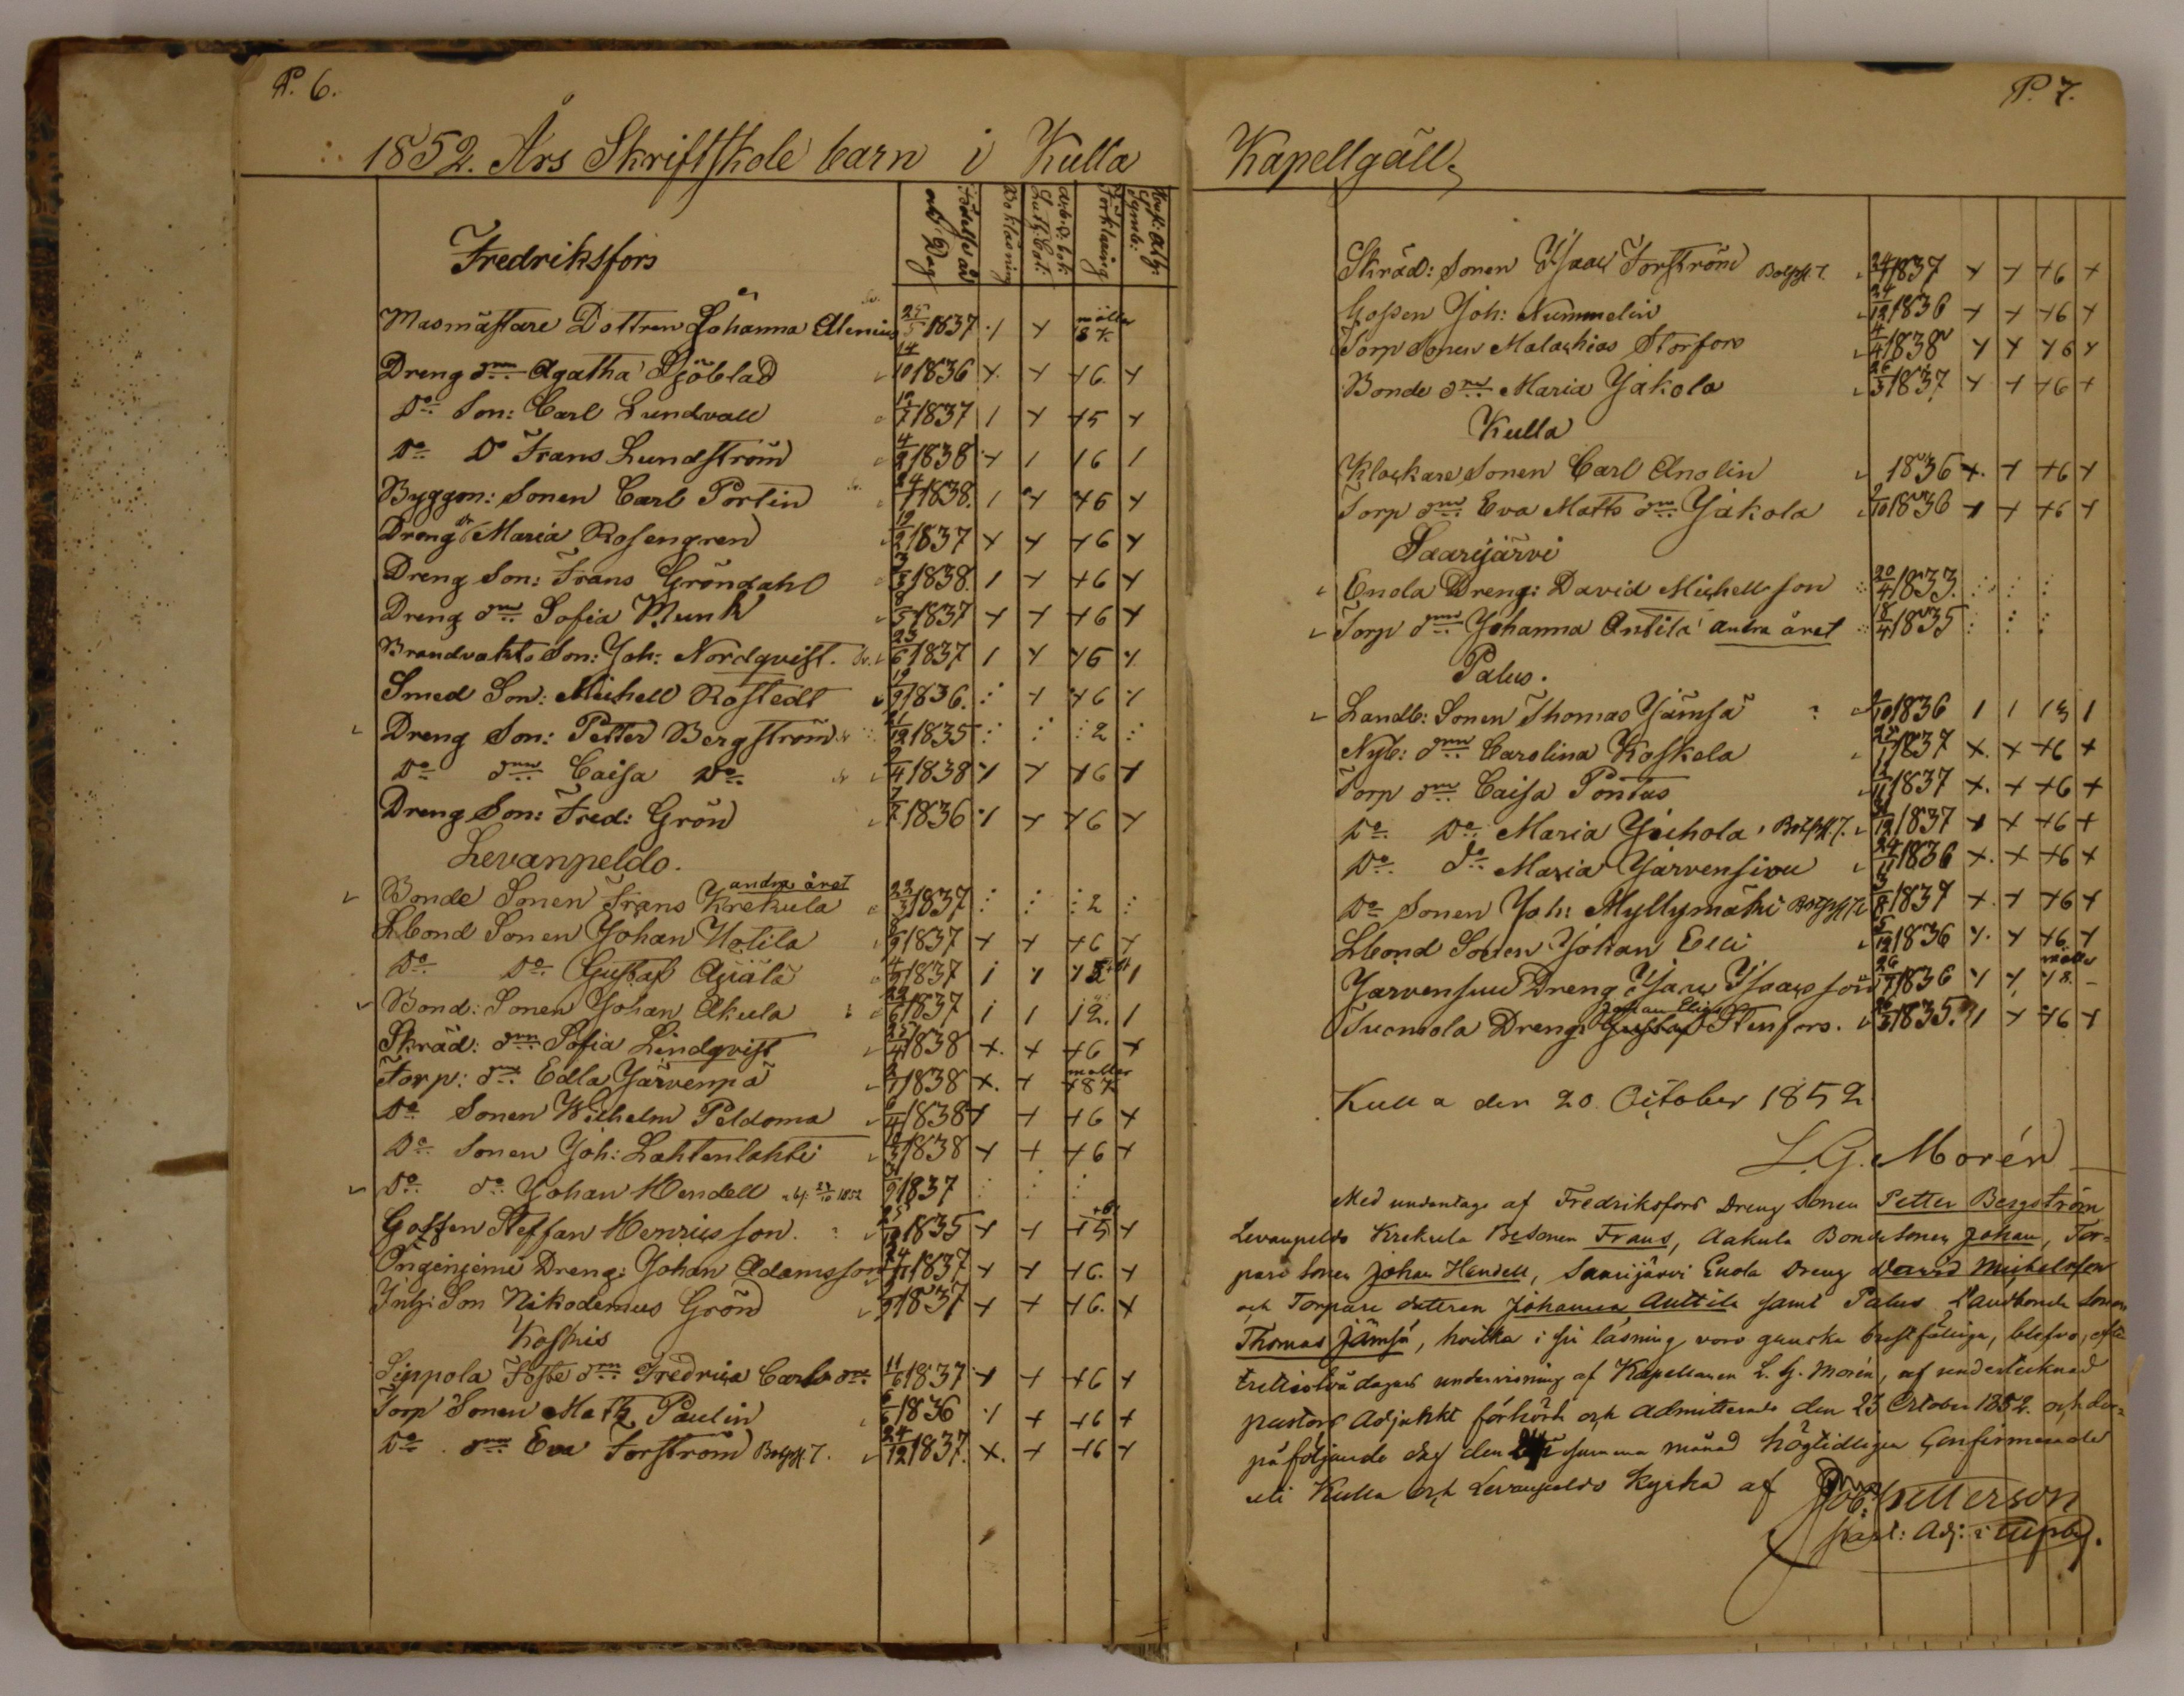 P. 6.
1852. Års Skriftskole barn i Kulla
Fredriksfors
Födelse år och Dag
Bokläsning
Luth: Cat:
Förklaring
Symb:
Masmästare Dottren Johanna Alenius 25/5 1837 mellan
Dreng dr Agatha Sjöblad 14/10 1836 + + +6 +
Do Son: Carl Lundvall 1837 1 + +5 +
Do Do Frans Lundström 4/2 1838 + 1 16 1
Byggm: Sonen Carl Portin 24/1 1838. 1 + +6 +
Dreng dr Maria Rosengren 19/2 1837 + + +6 +
Dreng Son: Frans Gröndahl 3/3 1838. 1 + +6 +
Dreng dr Sofia Munk 8/5 1837 + + +6 +
Brandvakts Son: Joh: Nordqvist. 23/6 1837 1 + +6 +
Smed Son: Michell Rostedt 19/9 1836. + +6 +
Dreng Son: Petter Bergström 21/12 1835 2
Do dr Caisa Do 9/4 1838 + + +6 +
Dreng Son: Fred: Grön 1836 + + +6 +
Levanpeldo.
andra året
Bonde Sonen Frans Krekula 22/3 1837 2
Lbond Sonen Johan Hotila 1837 + + +6 +
Do Do Gustaf 4/9 1837
Bond: Sonen Johan Akula 22/6 1837 1 1 12. 1
Skräd: dr Sofia Lindqvist 25/4 1838 + + +6 +
Torp: dr Edla Järvenpä 1838 + +
Do Sonen Wilhelm Peldoma 1838 + + +6 +
Do Sonen Joh: Lahtenlahti 1838 + + +6 +
Do do Johan Hendell 1837
Gossen Steffan Henricsson. 1835 + + +5 +
Dreng: Johan Adamsson 24/11 1837 + + +6. +
Inh: Son Nikodemus Grön 1837 + + +6. +
Koskis
Sippola Foste dr Fredrica Carls dr 11/6 1837 + + +6 +
Torp Sonen Matts Paulin 1836 + + +6 +
Do dr Eva Forström 24/12 1837. + + +6 +
P. 7.
Kapellgäll.
Skräd: Sonen Isaac Forström 1837 + + +6 +
Gossen Joh: Nummelin 24/12 1836 + + +6 +
Torp Sonen Malachias Storfors 4/4 1838 + + +6 +
Bonde dr Maria Jakola 26/3 1837 + + +6 +
Kulla
Klockare Sonen Carl Anolin 1836 + + +6 +
Torp dr Eva Matts dr Jakola 1836 + + +6 +
Saarijärvi
Enola Dreng: David Michellsson 20/4 1833.
Torp dr Johanna Antila andra året 18/4 1835
Palus.
Landb: Sonen Thomas Jämsä 1836 1 1 13 1
Nyb: dr Carolina Koskela 25/1 1837 + + +6 +
Torp dr Caisa Pontus 1837 + + +6 +
Do Do Maria 1837 + + +6 +
Do do Maria Järvensivu 24/11 1836 + + +6 +
Do Sonen Joh: Myllymäki 1837 + + +6 +
Lbond Sonen Johan Elli 5/12 1836 + + +6. +
Järvensuu Dreng: Isac Isacsson 26/7 1836 + + +8. –
Johan Elias
Tuomola Dreng: Gustaf Stenfors. 1835. 1 + +6 +
Kulla den 20. October 1852
L. G. Morén
Med undantag af Fredriksfors Dreng Sonen Petter Bergström
Levanpeldo Krekula Bdsonen Frans, Aakula Bondesonen Johan, Tor-
pare Sonen Johan Hendell, Saarijärvi Enola Dreng David Michelsson
och Torpare dottren Johanna Anttila samt Palus Landbonde Sonen
Thomas Jämsä, hvilka i sin läsning voro ganska bristfällige, blefvo, efter
tretiotvå dagars undervisning af Kapellanen L. G. Morén, af undertecknad
pastors Adjunkt förhörde och admitterade den 23 October 1852. och der-
påföljande dag den samma månad högtidligen Confirmerade
uti Kulla och Levanpeldo Kyrka af Petterson
past: Adj: i Ulfsby.